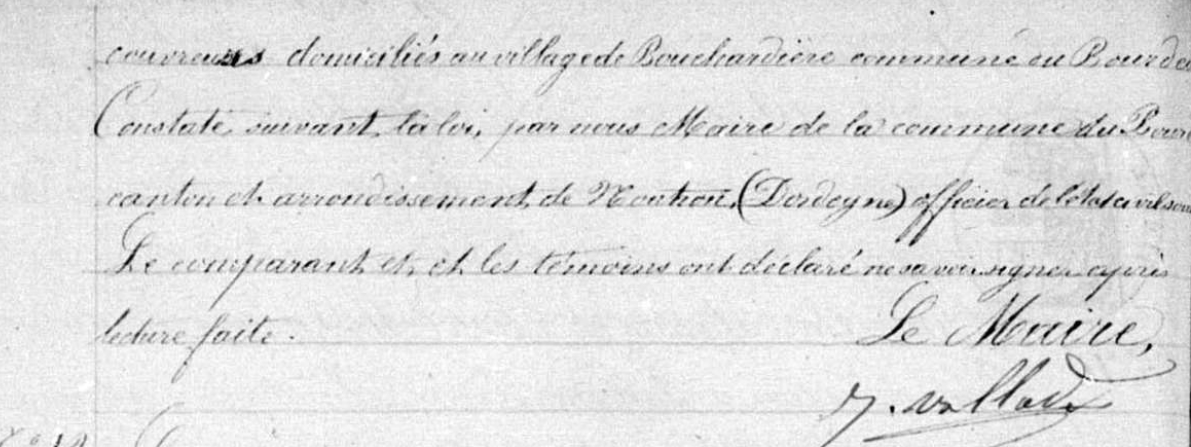 couvreurs domiciliés au village de Bouchardière commune du Bourde
Constaté, suivant, la loi, par nous Maire de la commune du Bour
canton et arrondissement, de Nontron, (Dordogne) officier de l'état civil sous
Le comparant et et les témoins ont déclaré ne savoir signer après
lecture faite.
Le Maire,
vallade